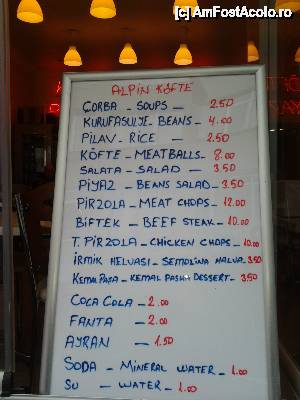 (c) AmFostAcolo.ro
ALPIN KÖFTE
ÇORBA - SOUPS - 2.50
KURUFASULJE - BEANS - 4.00
PİLAV - RICE - 2.50
KÖFTE - MEATBALLS - 8.00
SALATA - SALAD - 3.50
PİYAZ - BEANS SALAD - 3.50
PİRZOLA - MEAT CHOPS - 12.00
BİFTEK - BEEF STEAK - 10.00
T. PİRZOLA - CHICKEN CHOPS - 10.00
İRMİK HELVASI - SEMOLINA HALVA 3.50
KEMAL PAŞA - KEMAL PASHA DESSERT - 3.50
COCA COLA - 2.00
FANTA - 2.00
AYRAN - 1.50
SODA - MINERAL WATER - 1.00
SU - WATER - 1.00